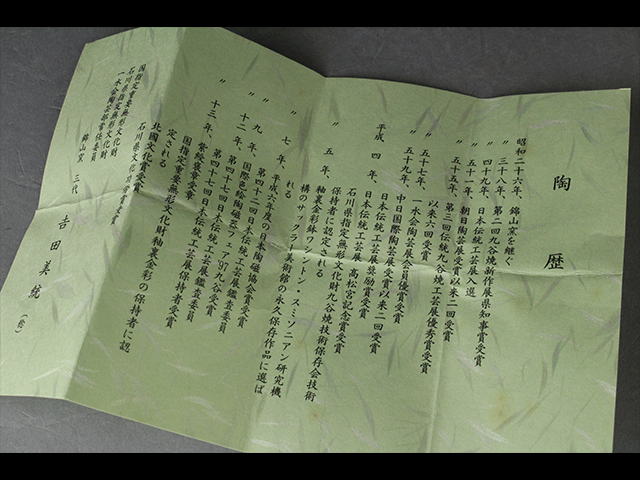 陶歴
昭和二十六年、錦山窯を継ぐ
〃三十八年、第二回九谷焼新作展県知事賞受賞
〃四十九年、日本伝統工芸展入選
〃五十一年、朝日陶芸展受賞以来二回受賞
〃五十五年、第三回伝統九谷焼工芸展優秀賞受賞
以来六回受賞
〃五十七年、一水会陶芸展会員優賞受賞
〃五十九年、中日国際陶芸展受賞以来二回受賞
平成四年、日本伝統工芸展奨励賞受賞
日本伝統工芸展高松宮記念賞受賞
石川県指定無形文化財九谷焼技術保存会技術
保持者に認定される
〃五年、釉裏金彩鉢ワシントン・スミソニアン研究機
構のサックラー美術館の永久保存作品に選ば
れる
〃七年、平成六年度の日本陶磁協会賞受賞
〃九年、第四十二回日本伝統工芸展鑑査委員
〃十二年、国際色絵陶磁器フェア'97九谷受賞
第四十七回日本伝統工芸展鑑査委員
第四十七回日本伝統工芸展保持者受賞
〃十三年、紫綬褒章受章
国指定重要無形文化財釉裏金彩の保持者に認
定される
北國文化賞受賞
石川県文化功労賞受賞
国指定重要無形文化財
石川県指定無形文化財
一水会陶芸部常任委員
錦山窯 三代 吉田美統